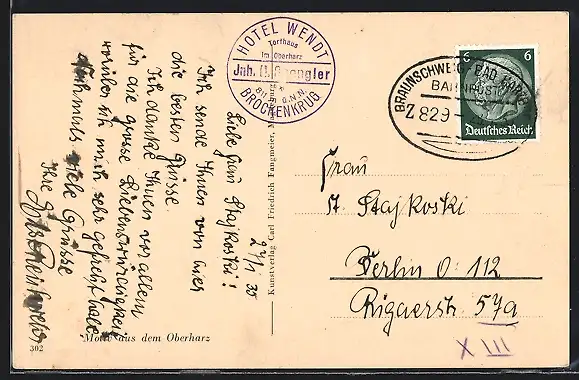 HOTEL WENDT
Torfhaus
im Oberharz
Jnh. O. Spengler
BROCKENKRUG
BRAUNSCHWEIG - BAD HARZBURG
BAHNPOST
Z 829
6 6
Deutsches Reich
24/1 35
Liebe Frau Stajkoski!
Ich sende Ihnen von hier
die besten Grüsse.
Ich danke Ihnen vor allem
für die grosse Liebenswürdigkeit
worüber ich mich sehr gefreut habe
Nochmals viele Grüsse
Ihre
Kunstverlag Carl Friedrich Fangmeier, Magdeburg
Frau
St. Stajkoski
Berlin O. 112
Rigaerstr. 57a
XIII
Motiv aus dem Oberharz
302